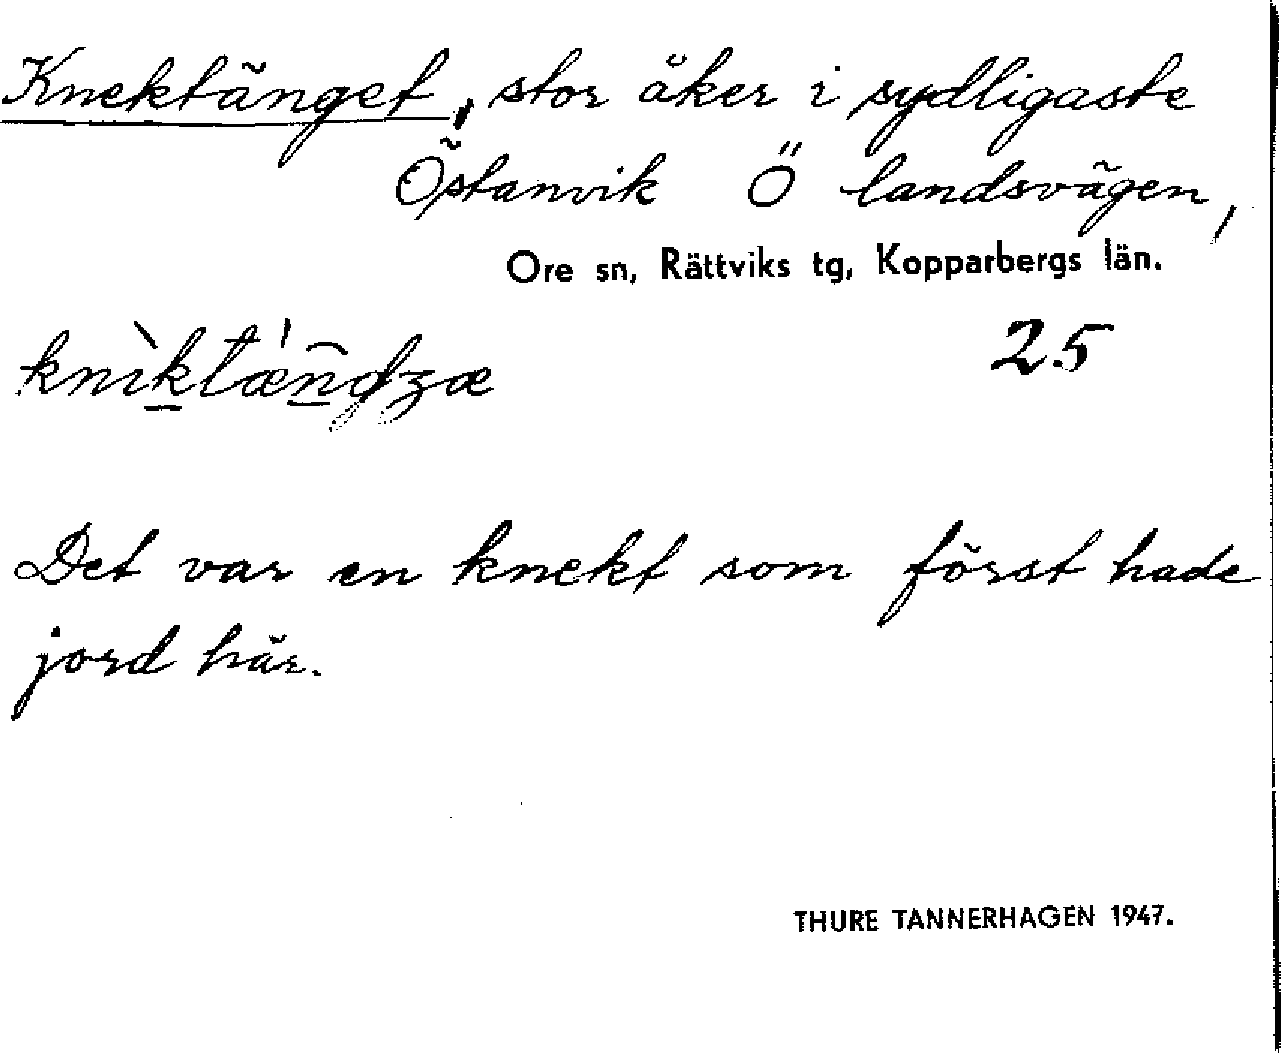 Knektänget, stor åker i sydligaste
Östanvik Ö landsvägen,
Ore sn, Rättviks tg, Kopparbergs län.
25
Det var en knekt som först hade
jord här.
THURE TANNERHAGEN 1947.